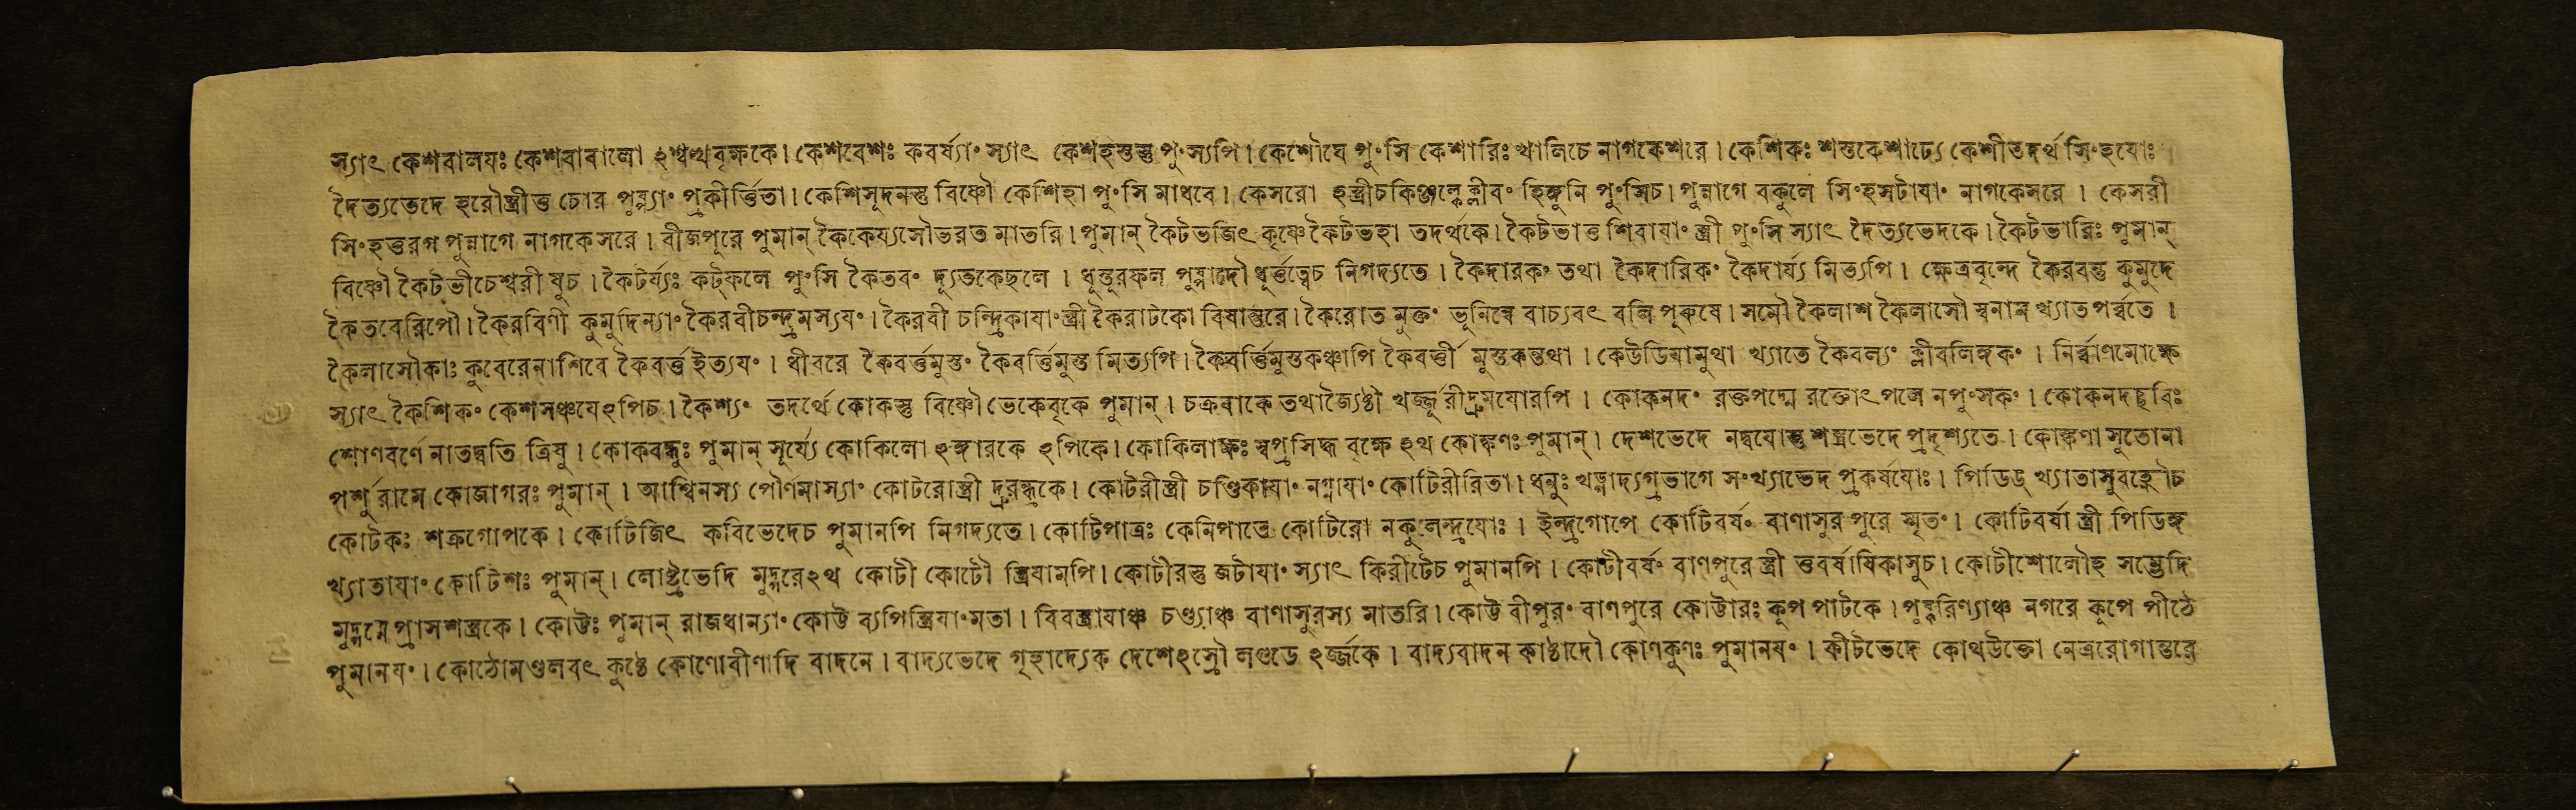 স্যাৎ কেশবালযঃ কেশবাবালো ঽশ্বত্থবৃক্ষকে। কেশবেশঃ কবর্য্যাং স্যাৎ কেশহস্তস্তু পুংস্যপি। কেশৌঘে পুংসি কেশারিঃ খালিচে নাগকেশরে। কেশিকঃ শস্তকেশাঢ্যে কেশীতদর্থ সিংহযোঃ
দৈত্যভেদে হরৌস্ত্রীত্ত চোর পুষ্প্যাং প্রকীর্ত্তিতা। কেশিসূদনস্তু বিষ্ণৌ কেশিহা পুংসি মাধবে। কেসরো ঽস্ত্রীচকিঞ্জল্কেক্লীবং হিঙ্গুনি পুংসিচ। পুন্নাগে বকুলে সিংহসটাযাং নাগকেসরে। কেসরী
সিংহতুরগ পুন্নাগে নাগকেসরে। বীজপূরে পুমান্ কৈকেয্যসৌভরত মাতরি। পুমান্ কৈটভজিৎ কৃষ্ণে কৈটভহা তদর্থকে। কৈটভাত্ত শিবাযাং স্ত্রী পুংসি স্যাৎ দৈত্যভেদকে। কৈটভারিঃ পুমান্
বিষ্ণৌ কৈটভীচেশ্বরী ষুচ। কৈটর্য্যঃ কট্ফলে পুংসি কৈতবং দ্যূতকেছলে। ধুস্তূরফল পুষ্পাদৌ ধূর্ত্তত্বেচ নিগদ্যতে। কৈদারকং তথা কৈদারিকং কৈদার্য্য মিত্যপি। ক্ষেত্রবৃন্দে কৈরবন্তু কুমুদে
কৈতবেরিপৌ। কৈরবিণী কুমুদিন্যাং কৈরবীচন্দ্রমস্যযং। কৈরবী চন্দ্রিকাযাংস্ত্রী কৈরাটকো বিষান্তরে। কৈরোত মুক্তং ভূনিম্বে বাচ্যবৎ বলি পুরুষে। সমৌ কৈলাশ কৈলাসৌ স্বনাম খ্যাত পর্ব্বতে।
কৈলাসৌকাঃ কুবেরেনাশিবে কৈবর্ত্তইত্যযং। ধীবরে কৈবর্ত্তমুস্তং কৈবর্ত্তিমুস্ত মিত্যপি। কৈবর্ত্তিমুস্তকঞ্চাপি কৈবর্ত্তী মুস্তকন্তথা। কেউডিযামুথা খ্যাতে কৈবল্যং ক্লীবলিঙ্গকং। নির্ব্বাণমোক্ষে
স্যাৎ কৈশিকং কেশসঞ্চযেঽপিচ। কৈশ্যং তদর্থে কোকস্তু বিষ্ণৌ ভেকেবৃকে পুমান্। চক্রবাকে তথাজ্যৈষ্ঠী খর্জ্জূরীদ্রুমযোরপি। কোকনদং রক্তপদ্মে রক্তোৎপলে নপুংসকং। কোকনদচ্ছবিঃ
শোণবর্ণে নাতদ্বতি ত্রিষু। কোকবন্ধুঃ পুমান্ সূর্য্যে কোকিলো ঽঙ্গারকে ঽপিকে। কোকিলাক্ষঃ স্বপ্রসিদ্ধ বৃক্ষে ঽথ কোঙ্কণঃ পুমান্। দেশভেদে নদ্বযোস্তু শস্ত্রভেদে প্রদৃশ্যতে। কোঙ্কণা সুতোনা
পর্শুরামে কোজাগরঃ পুমান্। আশ্বিনস্য পৌর্ণমাস্যাং কোটরোস্ত্রী দ্রুরন্ধ্রকে। কোটরীস্ত্রী চণ্ডিকাযাং নগ্নাযাং কোটিরীরিতা। ধনুঃ খড্গাদ্যগ্রভাগে সংখ্যাভেদ প্রকর্ষযোঃ। পিডিঙ খ্যাতাসুবহ্লৌচ
কোটকঃ শক্রগোপকে। কোটিজিৎ কবিভেদেচ পুমানপি নিগদ্যতে। কোটিপাত্রঃ কেনিপাতে কোটিরো নকুলেন্দ্রযোঃ। ইন্দ্রগোপে কোটিবর্ষং বাণাসুর পুরে স্মৃতং। কোটিবর্ষা স্ত্রী পিডিঙ্গ
খ্যাতাযাং কোটিশঃ পুমান্। লোষ্ট্রভেদি মুদ্গরেঽথ কোটী কোটৌ স্ত্রিযামপি। কোটীরস্তু জটাযাং স্যাৎ কিরীটেচ পুমানপি। কোটীবর্ষং বাণপুরে স্ত্রী ত্তবর্ষাষিকাসুচ। কোটীশোলৌহ সম্ভেদি
মুদ্গরে প্রাসশস্ত্রকে। কোট্টঃ পুমান্ রাজধান্যাং কোট্ট ব্যপিস্ত্রিযাংমতা। বিবস্ত্রাযাঞ্চ চণ্ড্যাঞ্চ বাণাসুরস্য মাতরি। কোট্ট বীপুরং বাণপুরে কোট্টারঃ কূপ পাটকে। পুষ্করিণ্যাঞ্চ নগরে কূপে পীঠে
পুমানযং। কোঠোমণ্ডলবৎ কুষ্ঠে কোণোবীণাদি বাদনে। বাদ্যভেদে গৃহাদ্যেক দেশেঽস্রৌ লগুডে ঽর্জ্জকে। বাদ্যবাদন কাষ্ঠাদৌ কোণকুণঃ পুমানযং। কীটভেদে কোথউক্তো নেত্ররোগান্তরে